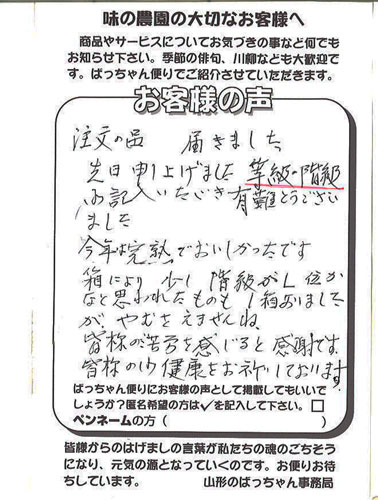 味の農園の大切なお客様へ
商品やサービスについてお気づきの事など何でも
お知らせ下さい。季節の俳句、川柳なども大歓迎で
す。ばっちゃん便りでご紹介させていただきます。
お客様の声
注文の品 届きました
先日申し上げました等級・階級
内記入いただき有難とうござい
ました
今年は完熟でおいしかったです
箱により 少し 階級がL位か
なと思われたものも1箱ありました
が、やむをえませんね。
皆称の苦労を感じると感謝です。
皆称の御健康をお祈しております
ばっちゃん便りにお客様の声として掲載してもいいで
しょうか?匿名希望の方は✓を記入して下さい。□
ペンネームの方( )
皆様からのはげましの言葉が私たちの魂のごちそう
になり、元気の源となっていくのです。お便りお待
ちしています。 山形のばっちゃん事務局